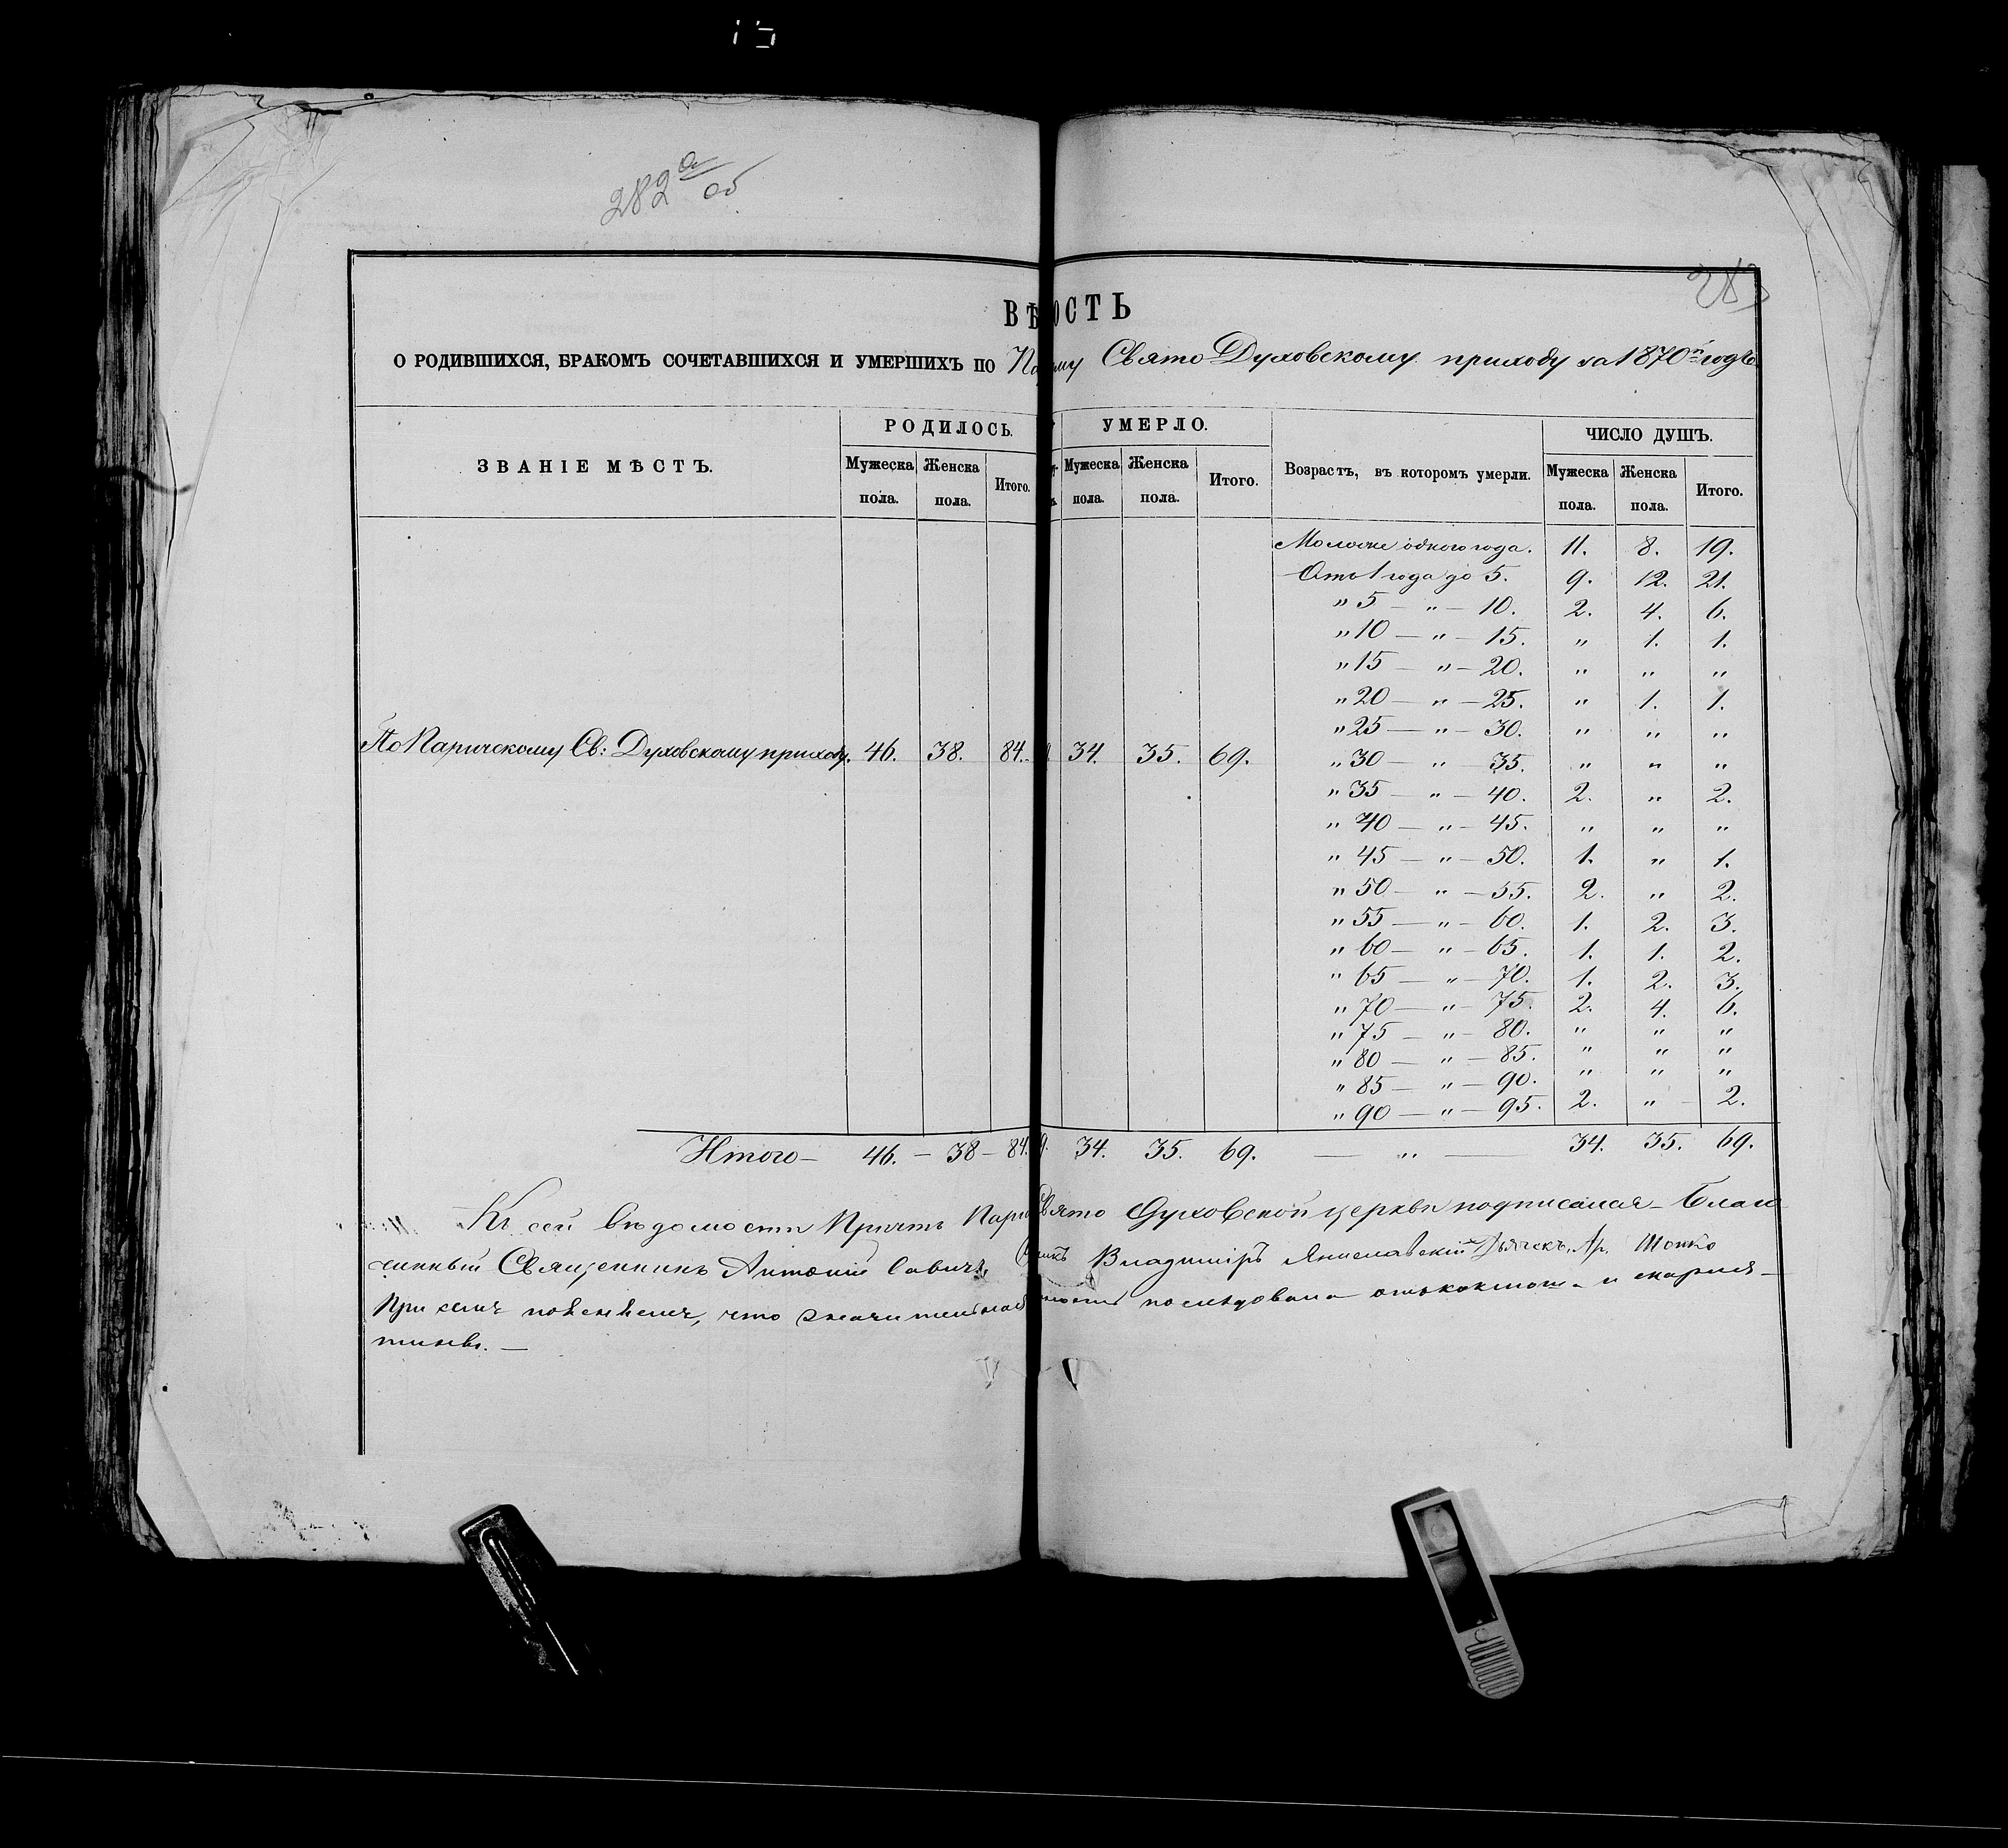 282 а/об
283
ВѢ ОСТЬ
О РОДИВШИХСЯ, БРАКОМЪ СОЧЕТАВШИХСЯ И УМЕРШИХЪ ПО Па му Свято Духовскому приходу за 1870й годъ.
ЗВАНІЕ МѢСТЪ. РОДИЛОСЬ. УМЕРЛО. Возрастъ, въ которомъ умерли. ЧИСЛО ДУШЪ.
Мужеска пола. Женска пола. Итого. Мужеска пола. Женска пола. Итого. Мужеска пола. Женска пола. Итого.
Моложе одного года. 11. 8. 19.
Отъ 1 года до 5. 9. 12. 21.
" 5 — " — 10. 2. 4. 6.
" 10 — " — 15. " 1. 1.
" 15 — " — 20. " " "
" 20 — " — 25. " 1. 1.
" 25 — " — 30. " " "
По Паричскому Св: Духовскому приходу. 46. 38. 84. 34. 35. 69.
" 30 — " — 35. " " "
" 35 — " — 40. 2. " 2.
" 40 — " — 45. " " "
" 45 — " — 50. 1. " 1.
" 50 — " — 55. 2. " 2.
" 55 — " — 60. 1. 2. 3.
" 60 — " — 65. 1. 1. 2.
" 65 — " — 70. 1. 2. 3.
" 70 — " — 75. 2. 4. 6.
" 75 — " — 80. " " "
" 80 — " — 85. " " "
" 85 — " — 90. " " "
" 90 — " — 95. 2. " 2.
Итого — 46. — 38 — 84. 9. 34. 35. 69. — " — 34. 35. 69.
Къ сей вѣдомости Причтъ Пари Свято Духовской церкви подписался — Благо
чинный Священникъ Антоній Савичъ, Владиміръ Дьячекъ
При семъ поясняемъ, что значительная послѣдовала отъ коклюша и скарла—
тины. —